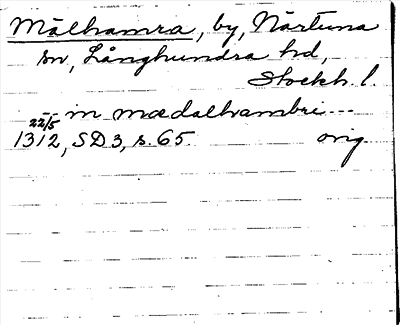 Målhamra, by, Närtuna
sn, Långhundra hd,
Stockh. l.
--- in mædalhambri ---
22/5
1312, SD3, s. 65. orig.